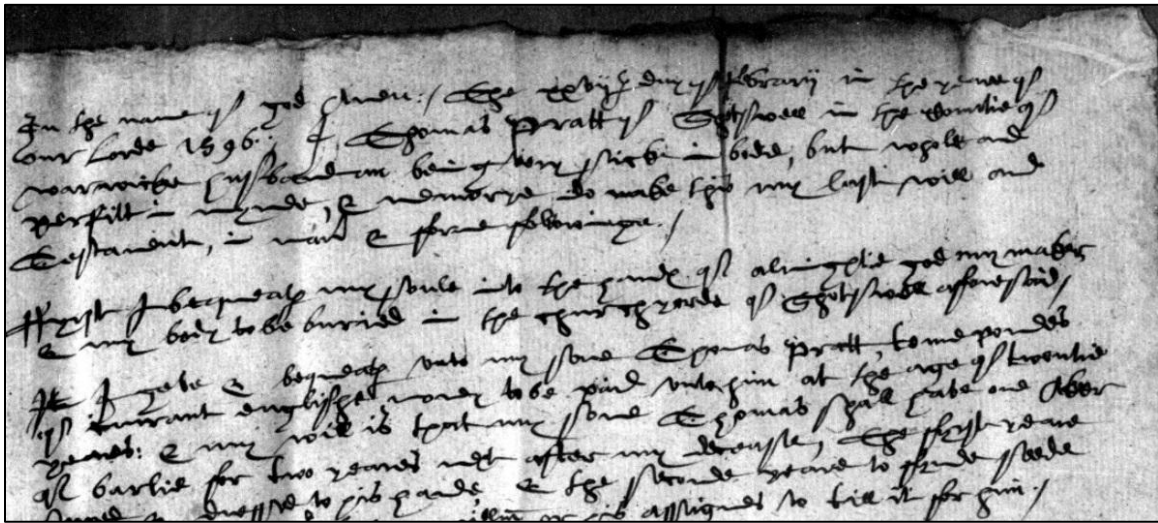 In the name of god Amen./ The xxvijth day of februarij in the yeare of
our Lorde 1596./ I Thomas Pratt of Shotswell in the Countie of
warwicke husbandman being very sicke in bodie, but whole and
perfitt in mynde, & memorye do make this my last will and
Testament, in maner & forme followinge./
ffyrst I bequeath my soule into the handes of almightie god my maker
& my body to be buried in the churchyarde of Shotswell afforesaid/
Itm I geve & bequeath unto my sone Thomas Pratt, tenne poundes
of currant englishe money to be paid unto him at the age of twentie
yeares: & my will is that my sone Thomas shall have one Aker
of barlie for two yeares next after my decease, The fyrst yeare
dressed to his hande, & the seconde yeare to fynde seede
or his assignes to till it for him./